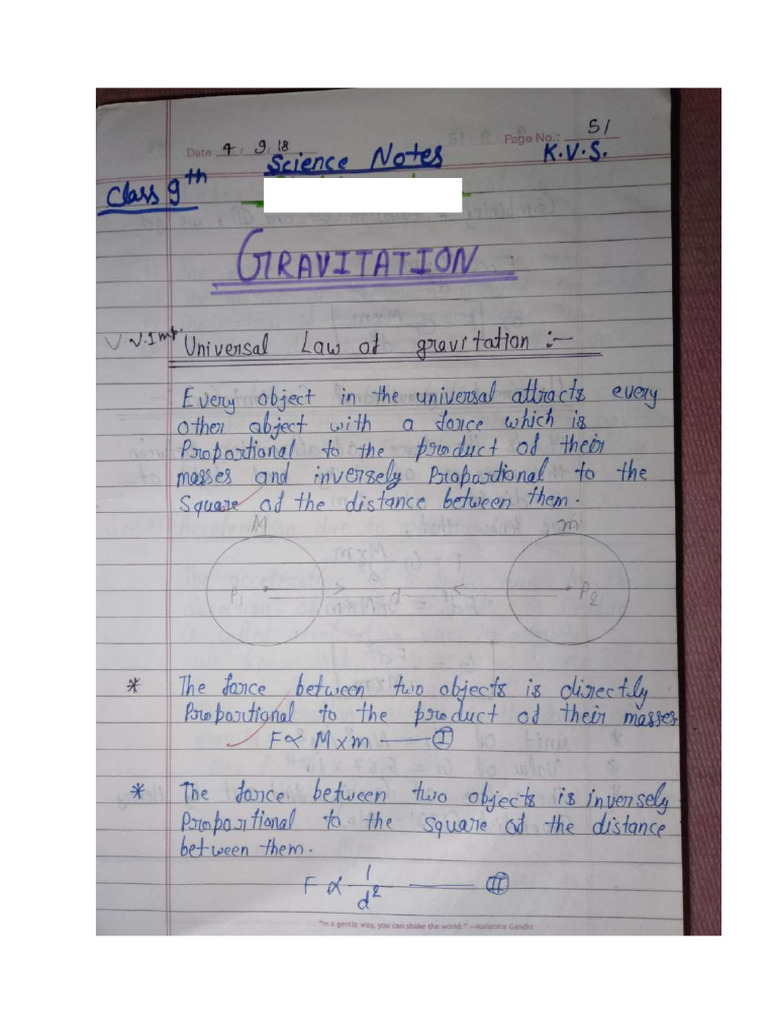 Date 4, 9, 18 Page No.: 51
Science Notes K.V.S.
Class 9th
GRAVITATION
V.V.Imp. Universal Law of gravitation :-
Every object in the universal attracts every
other object with a force which is
Proportional to the product of their
masses and inversely Proportional to the
Square of the distance between them.
M m
P1 d P2
* The force between two objects is directly
Proportional to the product of their masses
F ∝ M×m — I
* The force between two objects is inversely
Proportional to the square of the distance
between them.
F ∝ 1/d² — II
"In a gentle way, you can shake the world." —Mahatma Gandhi